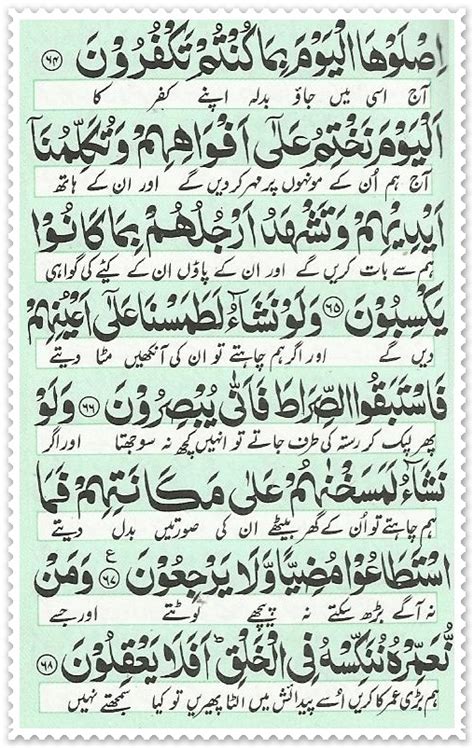 اِصْلَوْهَا الْيَوْمَ بِمَا كُنْتُمْ تَكْفُرُوْنَ ۶۴
آج اسی میں جاؤ بدلہ اپنے کفر کا
اَلْيَوْمَ نَخْتِمُ عَلٰۤى اَفْوَاهِهِمْ وَتُكَلِّمُنَاۤ
آج ہم اُن کے مونہوں پر مہر کر دیں گے اور ان کے ہاتھ
اَيْدِيْهِمْ وَتَشْهَدُ اَرْجُلُهُمْ بِمَا كَانُوْا
ہم سے بات کریں گے اور ان کے پاؤں ان کے کیئے کی گواہی
يَكْسِبُوْنَ ۶۵ وَلَوْ نَشَآءُ لَطَمَسْنَا عَلٰۤى اَعْيُنِهِمْ
دیں گے اور اگر ہم چاہتے تو ان کی آنکھیں مٹا دیتے
فَاسْتَبَقُوا الصِّرَاطَ فَاَنّٰى يُبْصِرُوْنَ ۶۶ وَلَوْ
پھر لپک کر رستہ کی طرف جاتے تو انہیں کچھ نہ سوجھتا اور اگر
نَشَآءُ لَمَسَخْنٰهُمْ عَلٰى مَكَانَتِهِمْ فَمَا
ہم چاہتے تو اُن کے گھر بیٹھے ان کی صورتیں بدل دیتے
اسْتَطَاعُوْا مُضِيًّا وَّلَا يَرْجِعُوْنَ ۶۷ ع وَمَنْ
نہ آگے بڑھ سکتے نہ پیچھے لوٹتے اور جسے
نُّعَمِّرْهُ نُنَكِّسْهُ فِى الْخَلْقِ ؕ اَفَلَا يَعْقِلُوْنَ ۶۸
ہم بڑی عمر کا کریں اُسے پیدائش میں الٹا پھیریں تو کیا سمجھتے نہیں